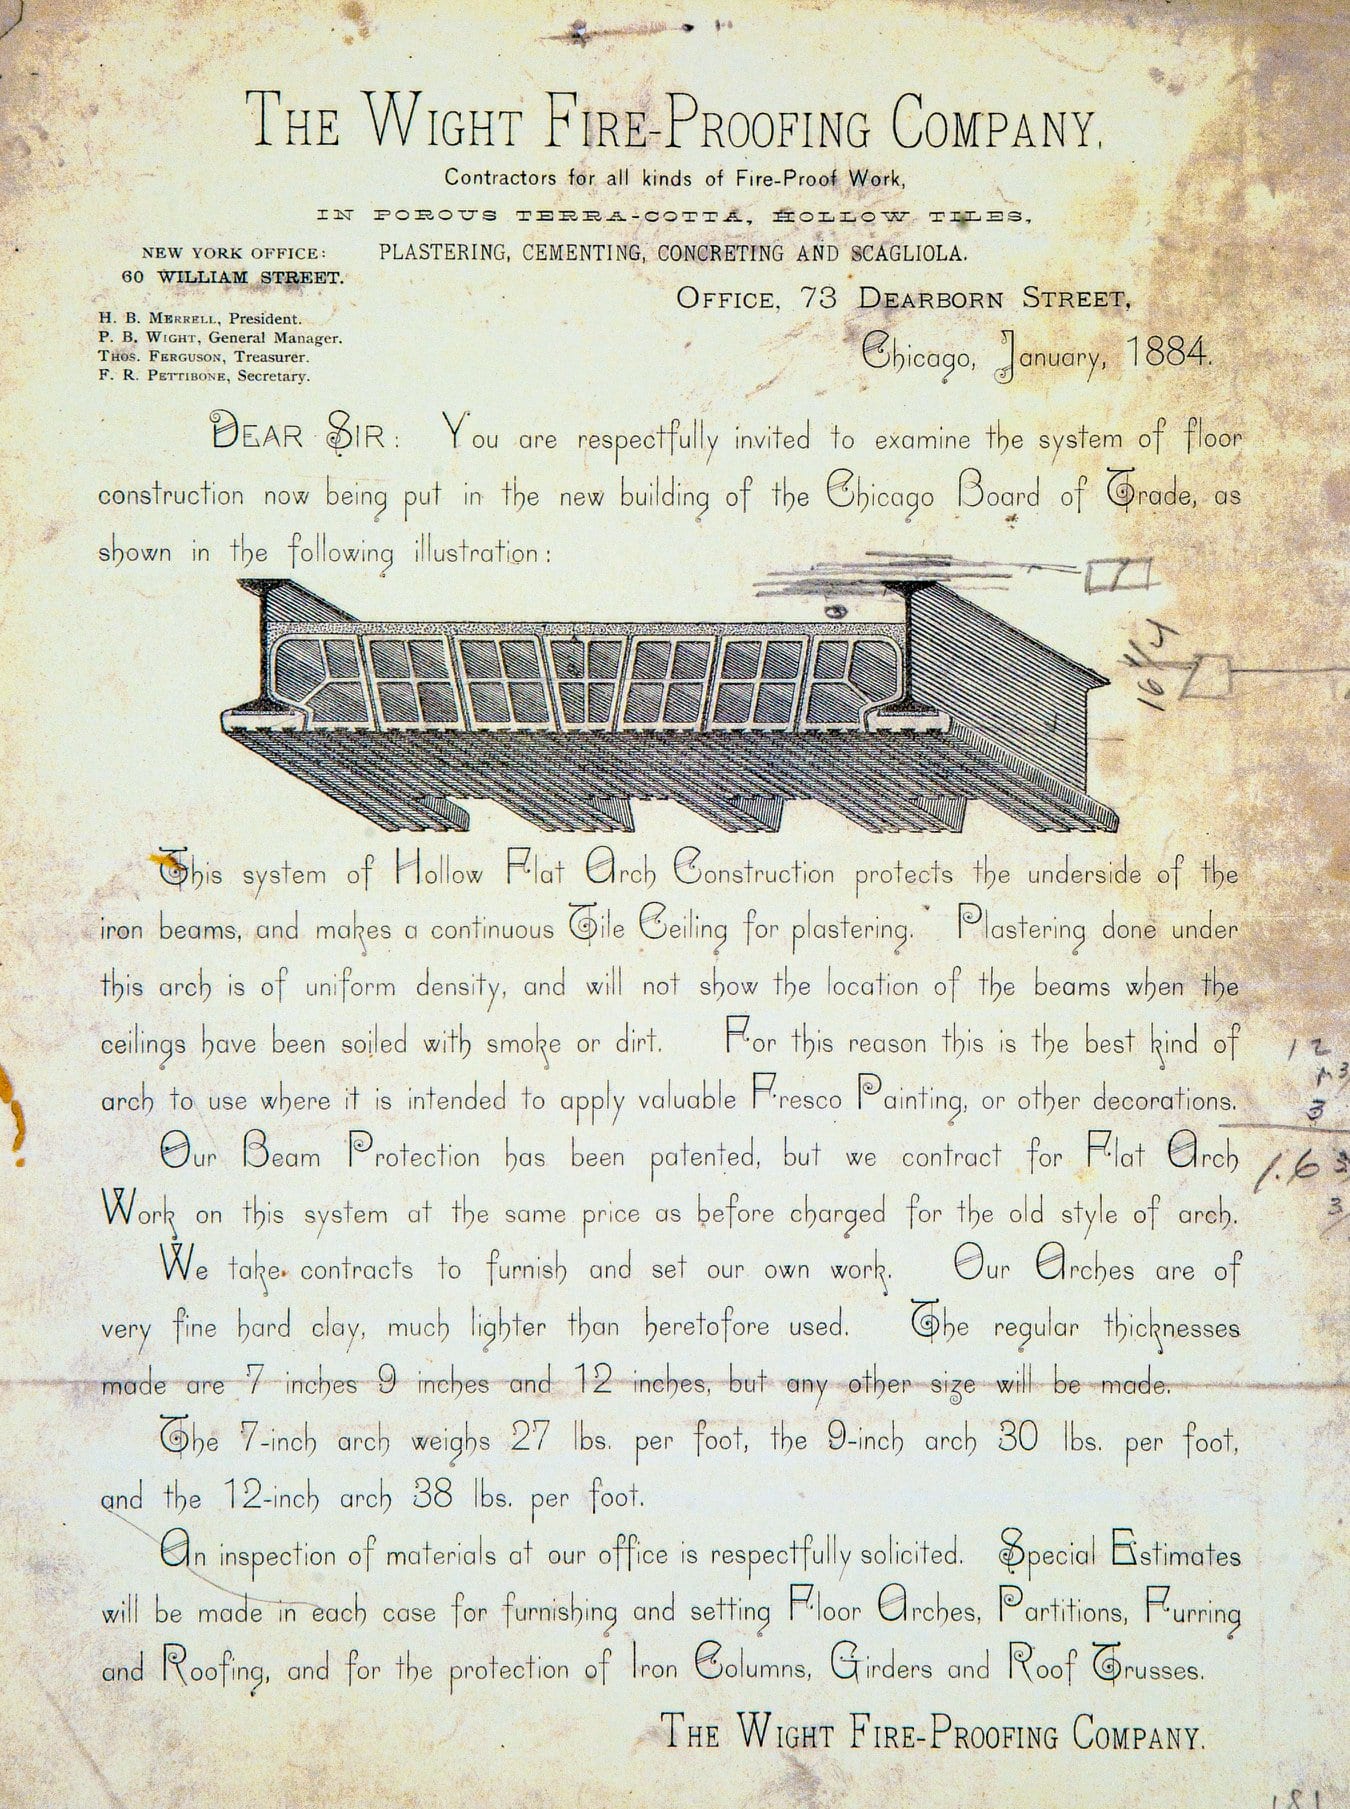 THE WIGHT FIRE-PROOFING COMPANY,
Contractors for all kinds of Fire-Proof Work,
IN POROUS TERRA-COTTA, HOLLOW TILES,
PLASTERING, CEMENTING, CONCRETING AND SCAGLIOLA.
NEW YORK OFFICE:
60 WILLIAM STREET.
OFFICE, 73 DEARBORN STREET,
H. B. MERRELL, President.
P. B. WIGHT, General Manager.
THOS. FERGUSON, Treasurer.
F. R. PETTIBONE, Secretary.
Chicago, January, 1884.
DEAR SIR: You are respectfully invited to examine the system of floor
construction now being put in the new building of the Chicago Board of Trade, as
shown in the following illustration:
16 1/4
This system of Hollow Flat Arch Construction protects the underside of the
iron beams, and makes a continuous Tile Ceiling for plastering. Plastering done under
this arch is of uniform density, and will not show the location of the beams when the
ceilings have been soiled with smoke or dirt. For this reason this is the best kind of
arch to use where it is intended to apply valuable Fresco Painting, or other decorations.
12
3
Our Beam Protection has been patented, but we contract for Flat Arch
1.6
Work on this system at the same price as before charged for the old style of arch.
We take contracts to furnish and set our own work. Our Arches are of
very fine hard clay, much lighter than heretofore used. The regular thicknesses
made are 7 inches 9 inches and 12 inches, but any other size will be made.
The 7-inch arch weighs 27 lbs. per foot, the 9-inch arch 30 lbs. per foot,
and the 12-inch arch 38 lbs. per foot.
An inspection of materials at our office is respectfully solicited. Special Estimates
will be made in each case for furnishing and setting Floor Arches, Partitions, Furring
and Roofing, and for the protection of Iron Columns, Girders and Roof Trusses.
THE WIGHT FIRE-PROOFING COMPANY.